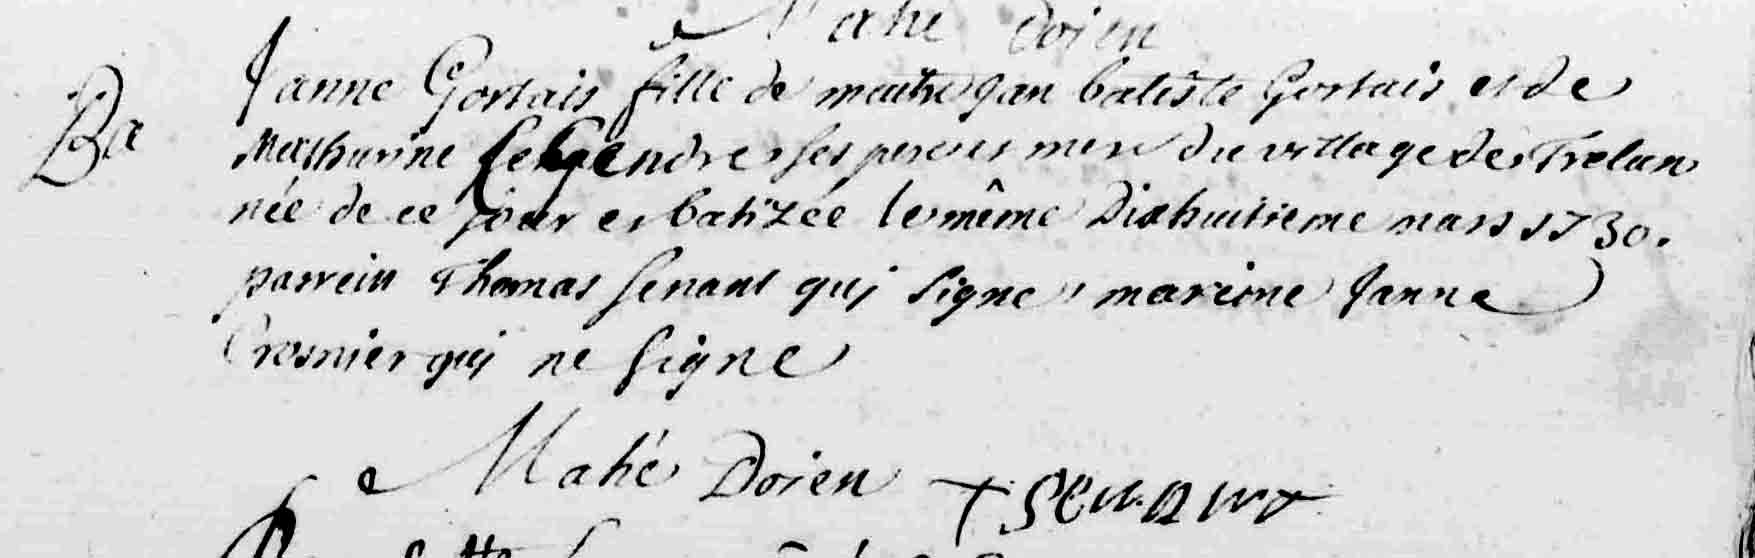 Mahé Doien
Ba
Janne Gortais fille de maitre Jan batiste Gortais et de
Mathurine Legendre ses pere et mere du village de Trelan
née de ce jour et batizée le même Dixhuitieme mars 1730.
parrein Thomas Senant qui signe, mareine Janne
Crosnier qui ne signe
Mahé Doien T Senant